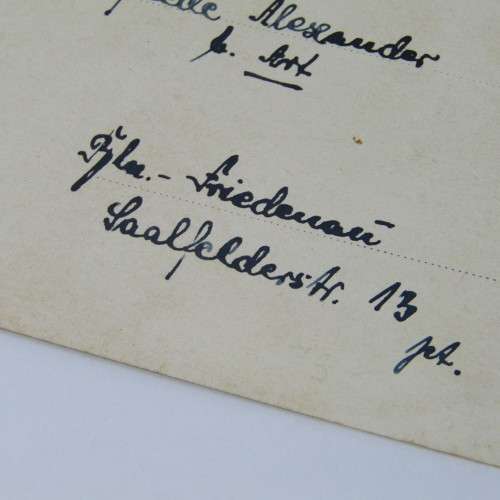 Alexander
b. Art
Bln.- Friedenau
Saalfelderstr. 13
pt.